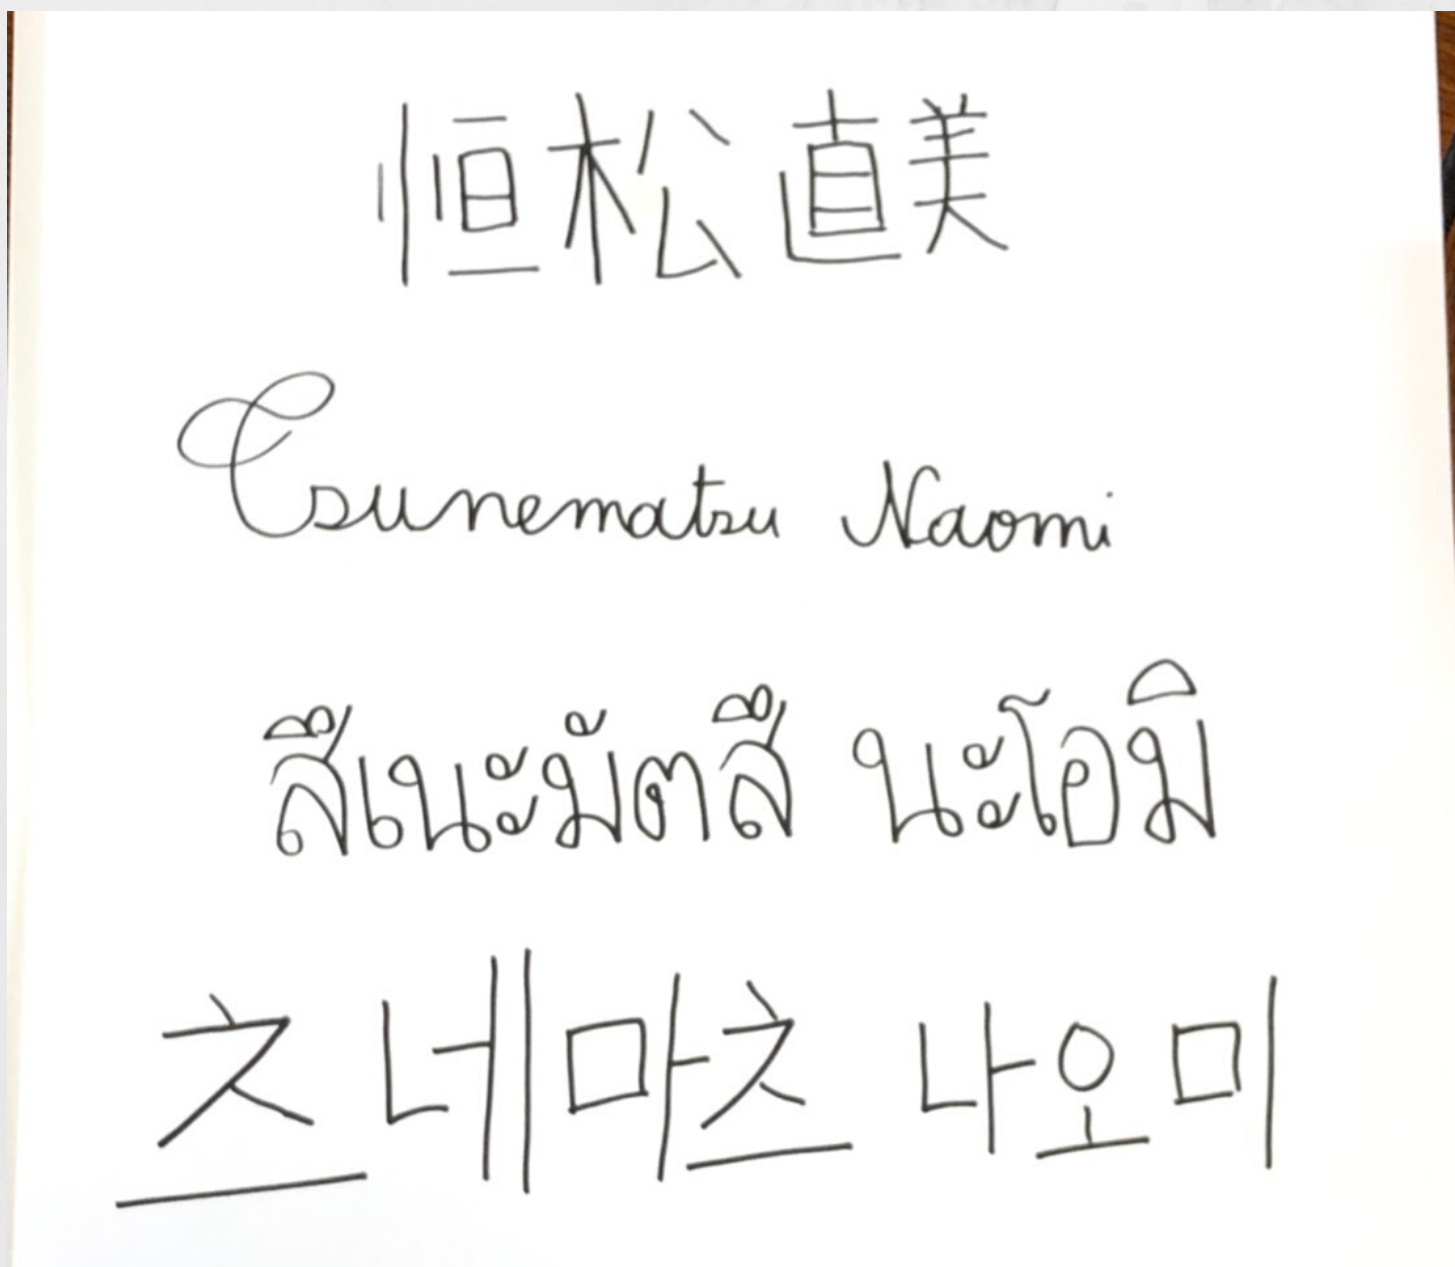 恒松直美
Tsunematsu Naomi
สึเนะมัตสึ นะโอมิ
츠네마츠 나오미